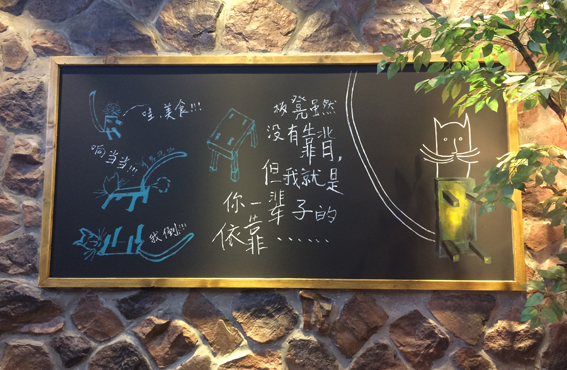 哇,美食!!!
响当当!!!
我倒!!!
板凳虽然
没有靠背,
但我就是
你一辈子的
依靠……